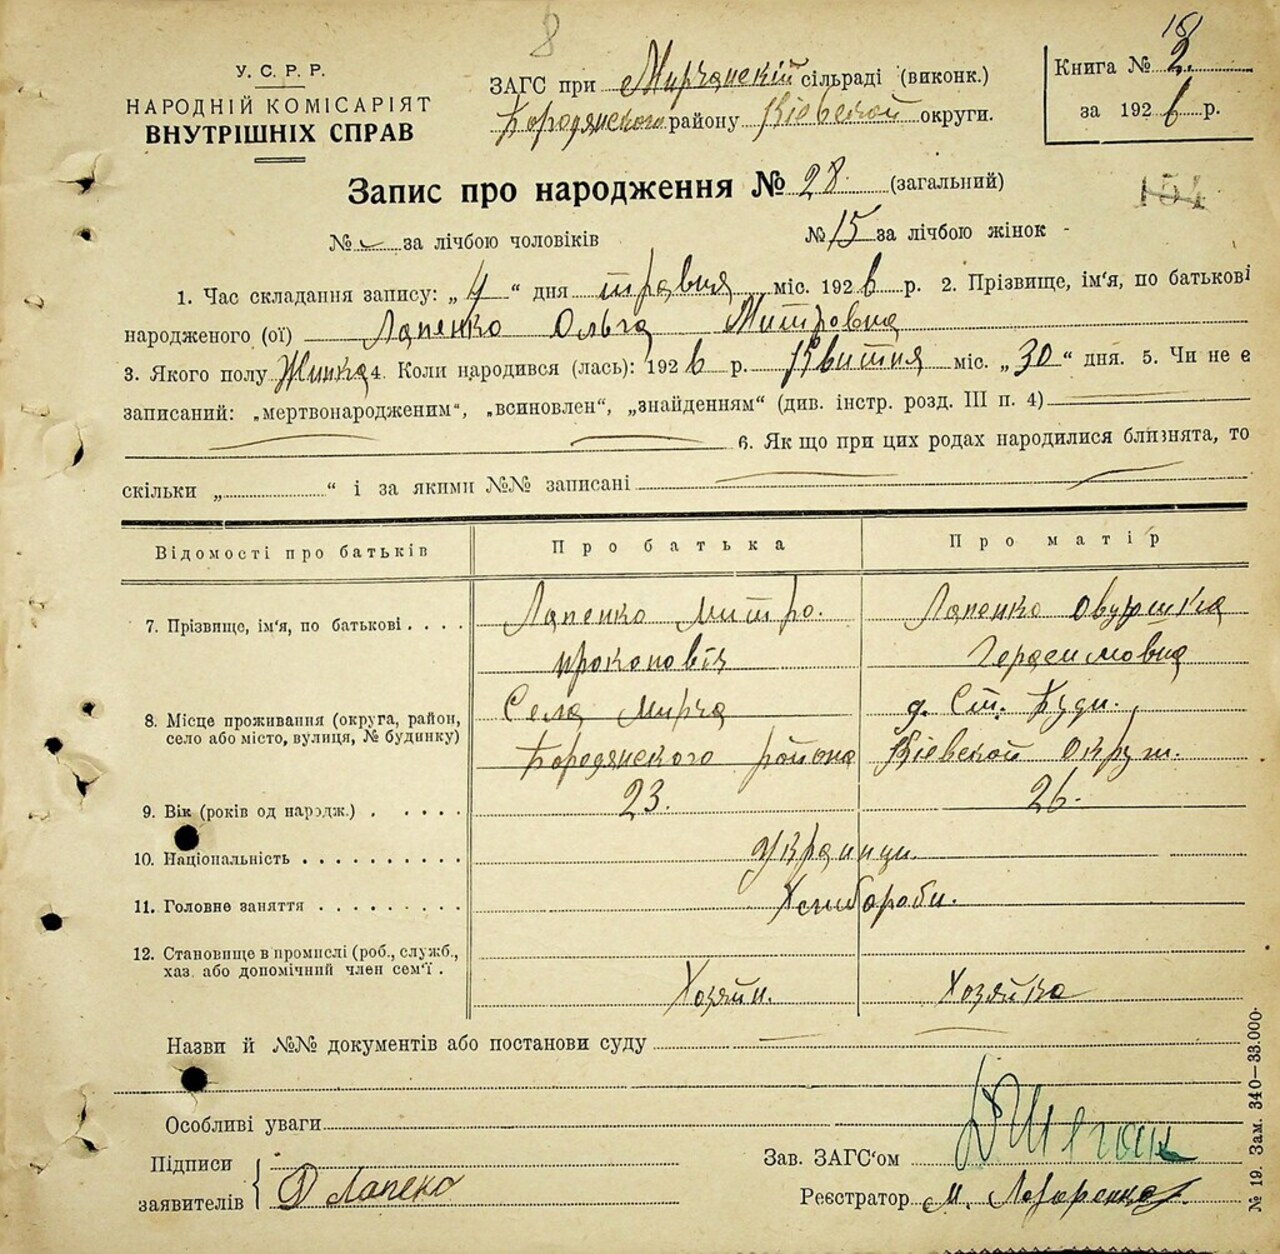 8
181
У. С. Р. Р.
НАРОДНІЙ КОМІСАРІЯТ
ВНУТРІШНІХ СПРАВ
ЗАГС при Мирчанскій сільраді (виконк.)
Бородянского району Кіевской округи.
Книга № 2.
за 1926 р.
Запис про народження № 28. (загальний)
154
№ за лічбою чоловіків № 15 за лічбою жінок
1. Час складання запису: „4“ дня травня міс. 1926 р. 2. Прізвище, ім‘я, по батькові
народженого (ої) Лапенко Ольга Митровна
3. Якого полу Жинка 4. Коли народився (лась): 1926 р. Квитня міс. „30“ дня. 5. Чи не є
записаний: „мертвонародженим“, „всиновлен“, „знайденням“ (див. інстр. розд. III п. 4)
6. Як що при цих родах народилися близнята, то
скільки „ “ і за якими №№ записані
Відомості про батьків Про батька Про матір
7. Прізвище, ім‘я, по батькові . . . . Лапенко Митро. Лапенко
прокоповіч Герасимовна
8. Місце проживання (округа, район, Села Мирча д. Ст. Буди.
село або місто, вулиця, № будинку) Бородянского района Кіевской Округ.
9. Вік (років од народж.) . . . . . 23. 26.
10. Національність . . . . . . . . . . Украинци.
11. Головне заняття . . . . . . . . . Хлибороби.
12. Становище в промислі (роб., служб.,
хаз. або допомічний член сем‘ї . Хозяйн. Хозяйка
Назви й №№ документів або постанови суду
Особливі уваги
Підписи Зав. ЗАГС‘ом
заявителів Д Лапеко Реєстратор М. Лазаренко
№ 19. Зам. 340—33.000.